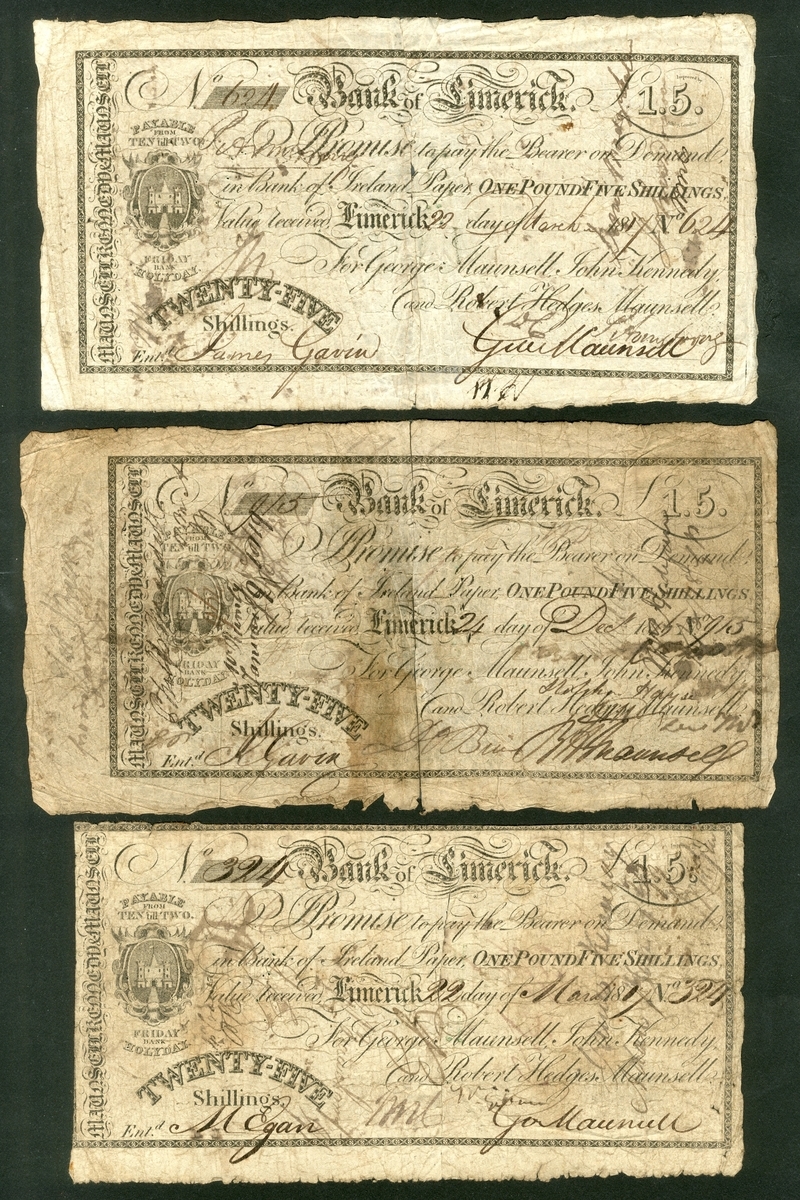 MAUNSELL KENNEDY MAUNSELL
No 624 Bank of Limerick. £1.5.
PAYABLE
FROM
TEN till TWO
I Promise to pay the Bearer on Demand
in Bank of Ireland Paper, ONE POUND FIVE SHILLINGS
Value received Limerick 22 day of March 1817 No 624
FRIDAY
BANK
HOLYDAY.
For George Maunsell, John Kennedy
and Robert Hedges Maunsell
TWENTY-FIVE
Shillings.
Ent.d James Gavin
Geo Maunsell
MAUNSELL KENNEDY MAUNSELL
No 915 Bank of Limerick. £1.5.
PAYABLE
FROM
TEN till TWO
I Promise to pay the Bearer on Demand
Bank of Ireland Paper, ONE POUND FIVE SHILLINGS
Value received Limerick 24 day of Decr No 915
FRIDAY
BANK
HOLYDAY.
For George Maunsell, John Kennedy
and Robert Hedges Maunsell
TWENTY-FIVE
Shillings.
Ent.d J Gavin
R H Maunsell
MAUNSELL KENNEDY MAUNSELL
No 324 Bank of Limerick. £1.5.
PAYABLE
FROM
TEN till TWO.
I Promise to pay the Bearer on Demand
in Bank of Ireland Paper, ONE POUND FIVE SHILLINGS
Value received Limerick 22 day of March 1817 No 324
FRIDAY
BANK
HOLYDAY.
For George Maunsell, John Kennedy
and Robert Hedges Maunsell
TWENTY-FIVE
Shillings.
Ent.d M Egan
Geo Maunsell